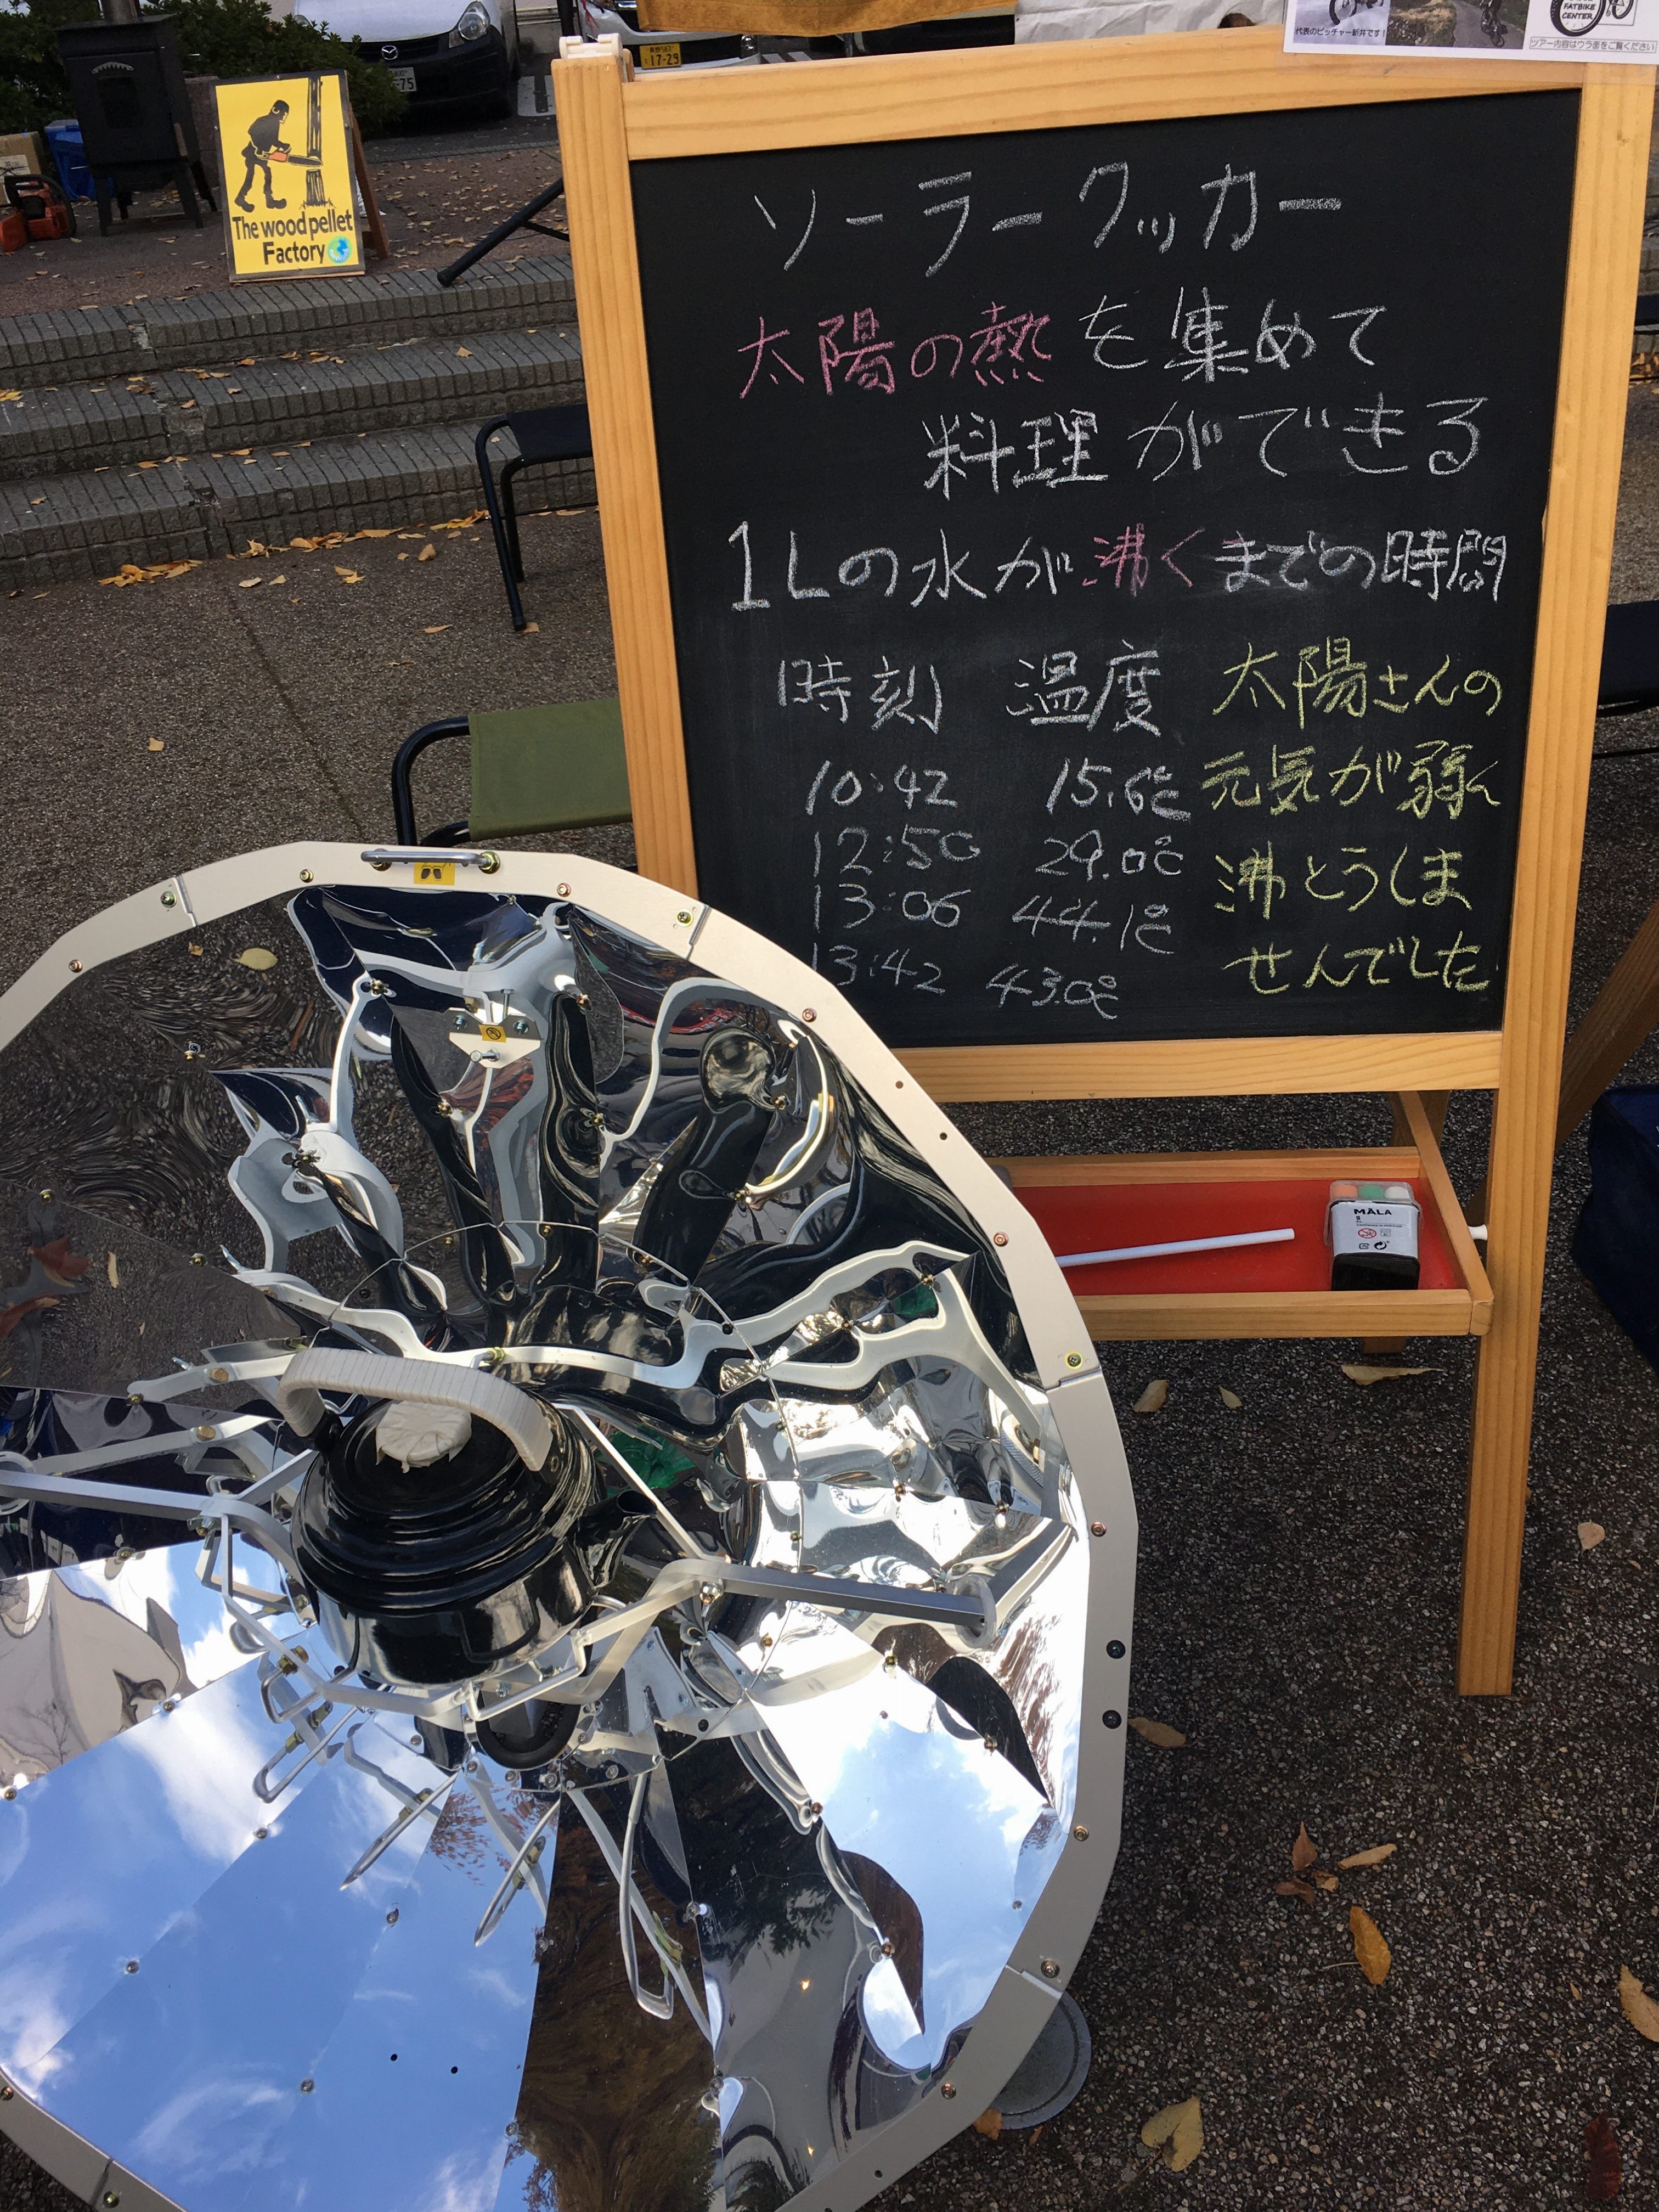 代表のピッチャー新井です！
FATBIKE
CENTER
ツアー内容はウラ面をご覧ください
17-29
75
The wood pellet
Factory
ソーラークッカー
太陽の熱を集めて
料理ができる
1Lの水が沸くまでの時間
時刻 温度
10:42 15.6℃
12:50 29.0℃
13:06 44.1℃
13:42 43.0℃
太陽さんの
元気が弱く
沸とうしま
せんでした
MÅLA